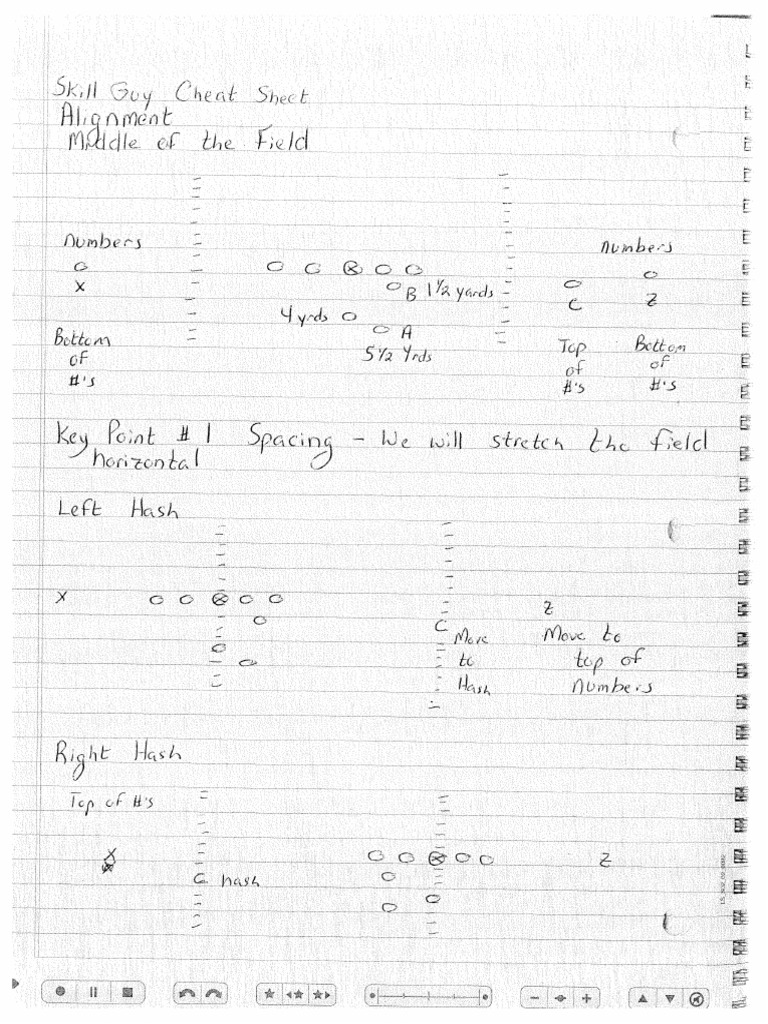 Skill Guy Cheat Sheet
Alignment
Middle of the Field
Numbers
Numbers
X
B 1½ yards
C
Z
4 yrds
A
5½ Yrds
Bottom
of
#'s
Top
of
#'s
Bottom
of
#'s
Key Point #1 Spacing - We will stretch the field
horizontal
Left Hash
X
Z
C
Move
to
Hash
Move to
top of
numbers
Right Hash
Top of #'s
X
Z
C hash